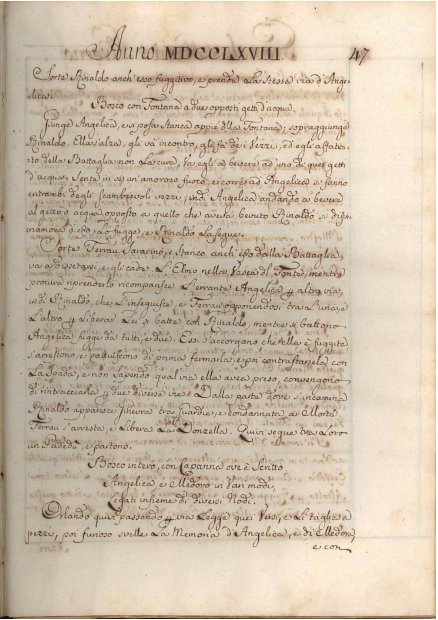 Anno MDCCLXVIII. 47
Sorte Rinaldo anch'esso fuggitivo, e prende la stessa via d'Ange-
lica.
Bosco con Fontana a due opposti getti d'acqua.
Giunge Angelica, e si posa stanca appiè della Fontana; sopraggiunge
Rinaldo. Ella s'alza, gli và incontro, gli fà de i Vezzi, ed egli affatica-
to dalla Battaglia non la cura, Và egli a bevere ad uno di quei getti
d'acqua. Sente in se un'amoroso fuoco, e corre ad Angelica si fanno
entrambi degli scambievoli vezzi, indi Angelica andando a bevere
al getto d'acqua opposto a quello che aveva bevuto Rinaldo si disin-
namora d'esso lo fugge, e Rinaldo la segue.
Sorte Ferraù Saracino, e stanco anch'esso dalla Battaglia,
va a dissetarsi, e gli cade l'Elmo nella Vasca del Fonte, mentre
procura riprenderlo ricomparisce Angelica p altra via,
e Rinaldo, che l'insegue, e Ferraù opponendosi tra l'una, e
l'altro p liberar Lei si batte con Rinaldo, mentre si battono
Angelica fugge da tutti, e due. Essi s'accorgano che ella è fuggita
s'arrestono e pattuiscono di prima fermarla, e poi contrastarsela con
la Spada, e non sapendo qual via ella avea preso, convengono
di rintracciarla p due diverse vie. Dalla parte dove s'incamina
Rinaldo apparisce Ginevra tra Guardie, e condannata a Morte
Ferraù s'arresta, e libera la Donzella. Quivi segue tra loro
un Padedù, e partono.
Bosco intero, con Capanna ove è scritto
Angelica, e Medoro in Vari modi,
Legati insieme di diversi Nodi.
Orlando quivi passando p via legge quei Versi, e li taglia a
pezzi, poi furioso svelle la Memoria d'Angelica, e di Medoro,
e con